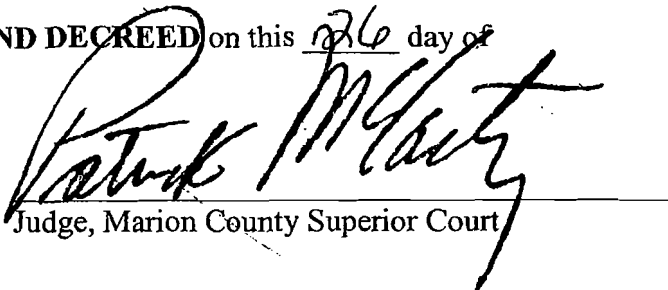 ND DECREED on this 26 day of
Patrick McCarty
Judge, Marion County Superior Court